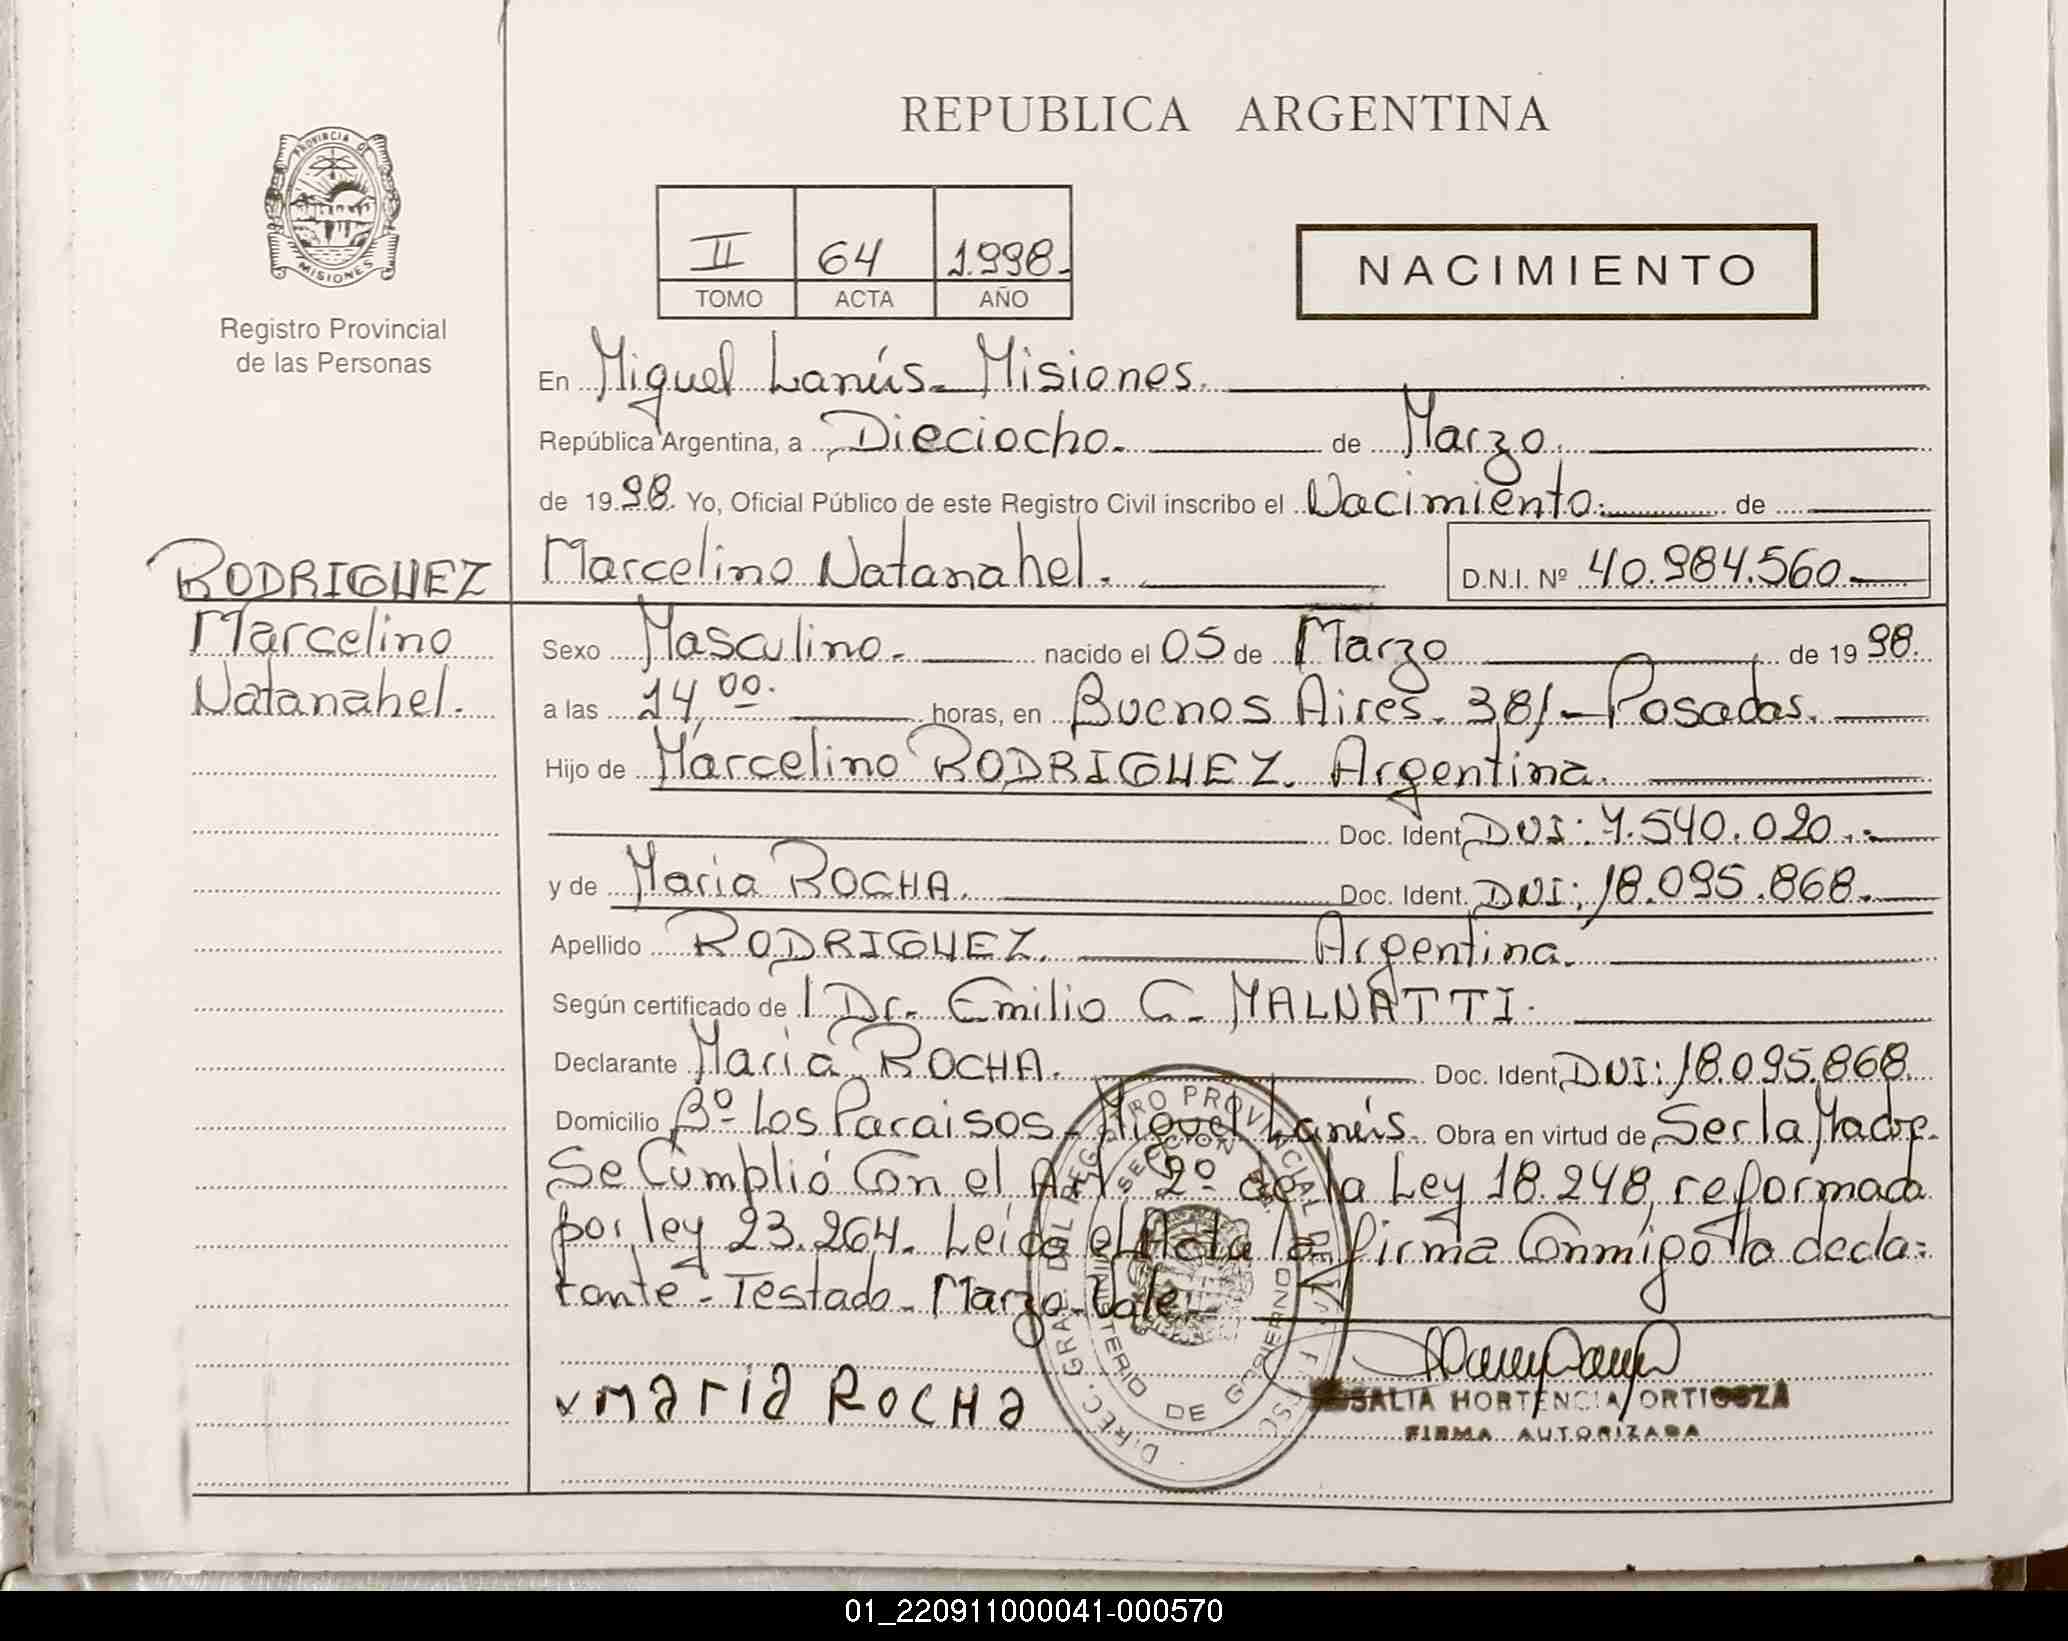 REPUBLICA ARGENTINA
PROVINCIA DE
MISIONES
Registro Provincial
de las Personas
II 64 1.998.
TOMO ACTA AÑO
NACIMIENTO
En Miguel Lanús - Misiones.
República Argentina, a Dieciocho. de Marzo.
de 1998. Yo, Oficial Público de este Registro Civil inscribo el Nacimiento. de
RODRIGUEZ
Marcelino
Natanahel.
Marcelino Natanahel. D.N.I. Nº 40.984.560
Sexo Masculino. nacido el 05 de Marzo de 1998.
a las 14,00. horas, en Buenos Aires. 381 - Posadas.
Hijo de Marcelino RODRIGUEZ. Argentina.
Doc. Ident. DNI: 7.540.020.
y de Maria ROCHA. Doc. Ident. DNI: 18.095.868.
Apellido RODRIGUEZ. Argentina.
Según certificado de l Dr. Emilio C. MALNATTI.
Declarante Maria ROCHA. Doc. Ident. DNI: 18.095.868.
Domicilio Bº Los Paraisos - Miguel Lanús. Obra en virtud de Ser la Madre.
Se Cumplió Con el Art. 2º de la Ley 18.248, reformada
por ley 23.264. Leída el Acta la firma Conmigo la decla-
rante - Testado - Marzo - Vale
MARIA ROCHA
DIREC. GRAL. DEL REGISTRO PROVINCIAL DE LAS
SECCION
MINISTERIO DE GOBIERNO
ROSALIA HORTENCIA ORTIGOZA
FIRMA AUTORIZADA
01_220911000041-000570